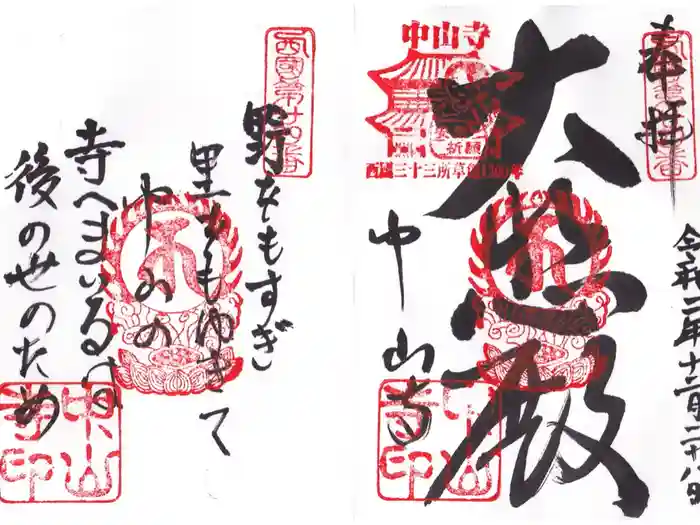 奉拝
大悲殿
中山寺
令和二年十二月二十八日
中山寺
祈願
西国三十三所草創1300年
中山寺印
西國第廿四番
野をもすぎ
里をもゆきて
中山の
寺へまいるは
後の世のため
西國第廿四番
中山寺印